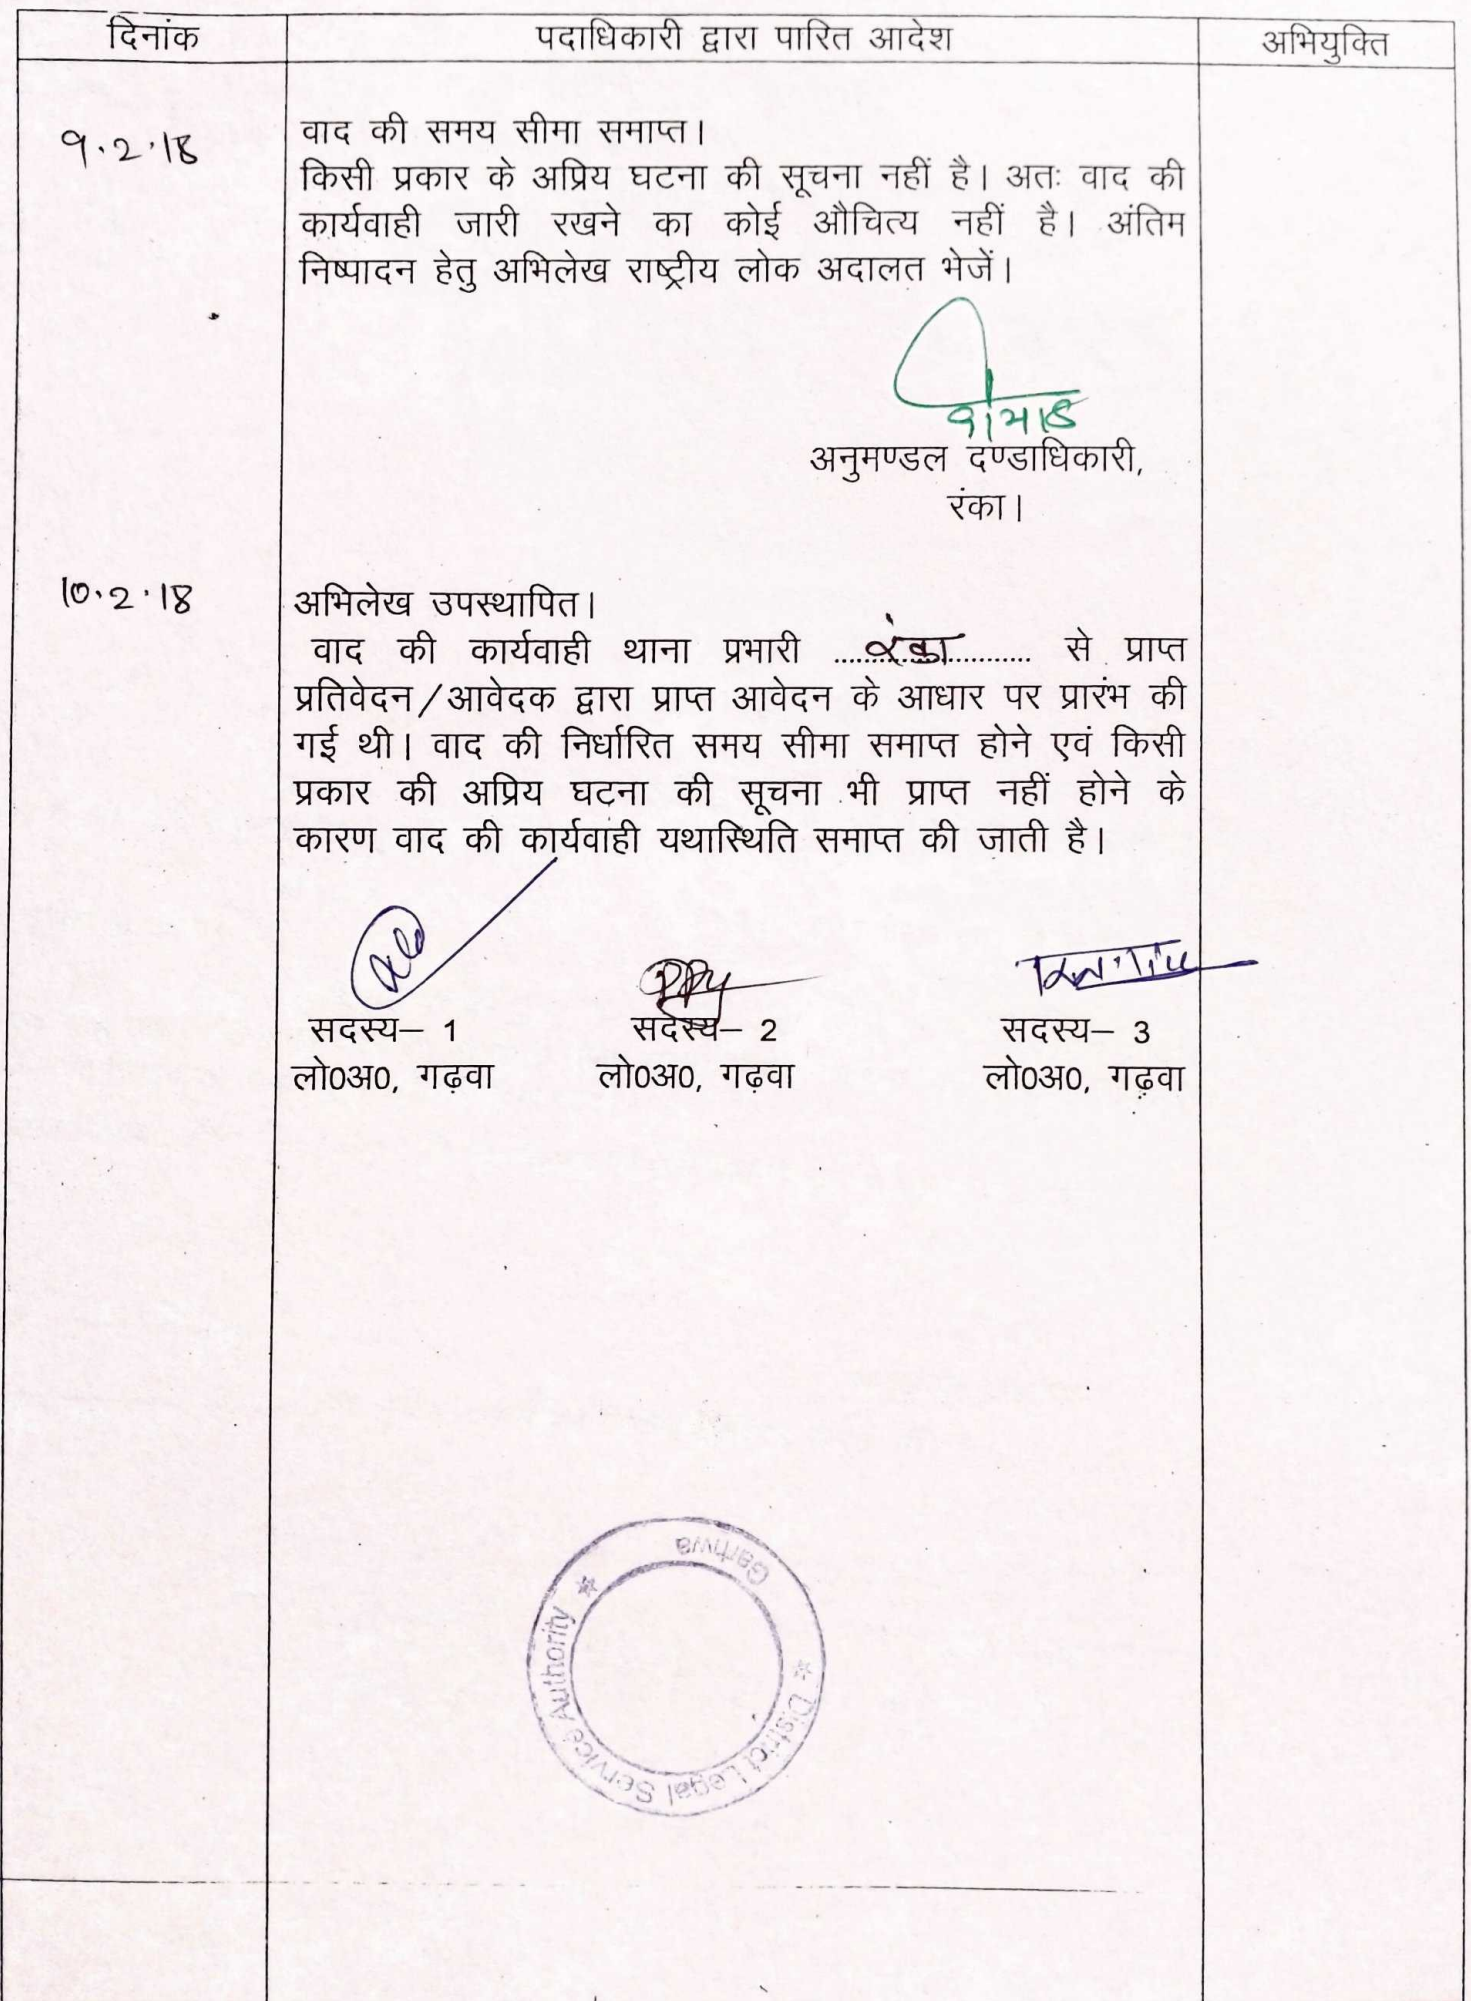 दिनांक पदाधिकारी द्वारा पारित आदेश अभियुक्ति
9.2.18 वाद की समय सीमा समाप्त।
किसी प्रकार के अप्रिय घटना की सूचना नहीं है। अतः वाद की
कार्यवाही जारी रखने का कोई औचित्य नहीं है। अंतिम
निष्पादन हेतु अभिलेख राष्ट्रीय लोक अदालत भेजें।
अनुमण्डल दण्डाधिकारी,
रंका।
10.2.18 अभिलेख उपस्थापित।
वाद की कार्यवाही थाना प्रभारी ....रंका.... से प्राप्त
प्रतिवेदन/आवेदक द्वारा प्राप्त आवेदन के आधार पर प्रारंभ की
गई थी। वाद की निर्धारित समय सीमा समाप्त होने एवं किसी
प्रकार की अप्रिय घटना की सूचना भी प्राप्त नहीं होने के
कारण वाद की कार्यवाही यथास्थिति समाप्त की जाती है।
सदस्य– 1 सदस्य– 2 सदस्य– 3
लो0अ0, गढ़वा लो0अ0, गढ़वा लो0अ0, गढ़वा
District Legal Service Authority
Garhwa